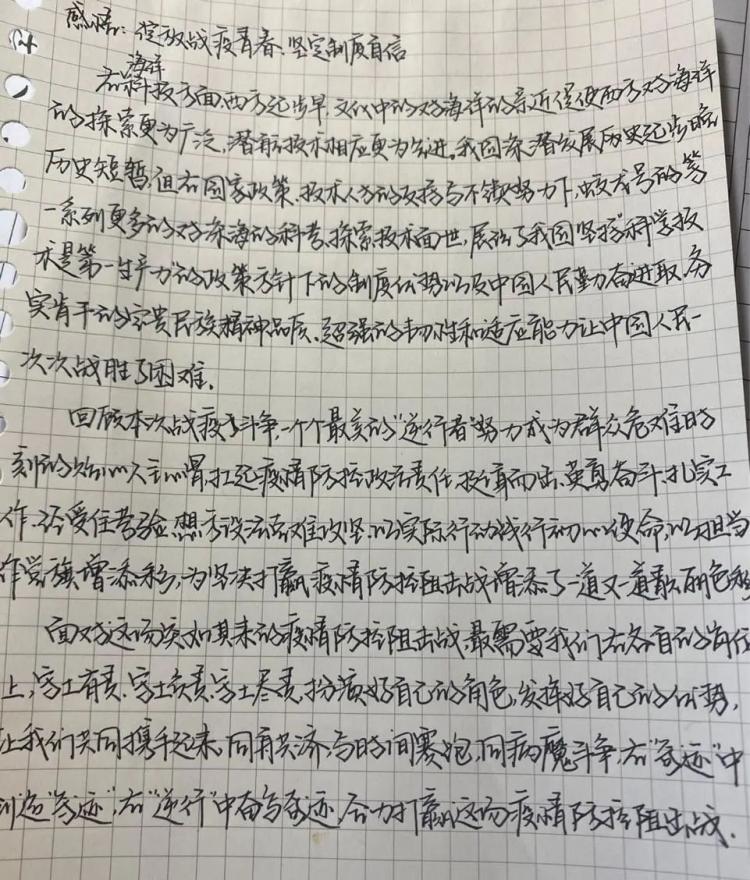 感悟:绽放战疫青春.坚定制度自信
海洋
在科技方面,西方起步早,文化中的对海洋的亲近促使西方对海洋
的探索更为广泛,潜航技术相应更为先进。我国深潜发展历史起步晚
历史短暂,但在国家政策、技术人员的支持与不懈努力下,蛟龙号的等
一系列更多的对深海的科考、探索技术面世,展现了我国坚持"科学技
术是第一生产力"的政策方针下的制度优势以及中国人民勤奋进取、务
实肯干的宝贵民族精神品质.超强的韧性和适应能力让中国人民一
次次战胜了困难.
回顾本次战疫斗争,一个个最美的"逆行者"努力成为群众危难时
刻的贴心人主心骨,扛起疫情防控政治责任,挺身而出、英勇奋斗、扎实工
作、经受住考验,想方设法克难攻坚.以实际行动践行初心使命,以担当
作党旗增添彩,为坚决打赢疫情防控阻击战增添了一道又一道靓丽色彩
面对这场突如其来的疫情防控阻击战,最需要我们在各自的岗位
上,守土有责、守土负责、守土尽责,扮演好自己的角色,发挥好自己的优势,
让我们共同携手起来,同舟共济,与时间赛跑,同病魔斗争,在"奇迹"中
创造"奇迹",在"逆行"中奋写奇迹,合力打赢这场疫情防控阻击战.